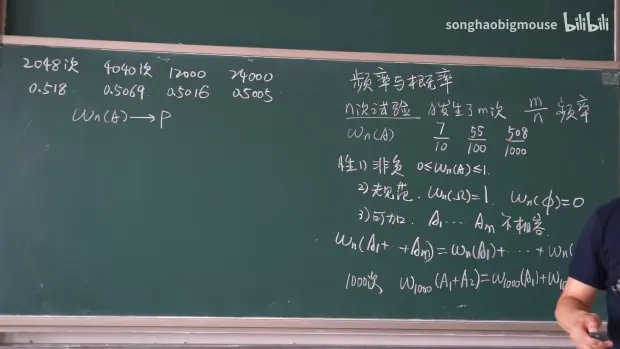 songhaobigmouse bilibili
2048次 4040次 12000 24000
0.518 0.5069 0.5016 0.5005
ωn(A)→P
频率与概率
n次试验 A发生了m次 m/n 频率
ωn(A) 7/10 55/100 508/1000
性1) 非负 0≤ωn(A)≤1.
2) 规范. ωn(Ω)=1, ωn(ϕ)=0
3) 可加. A1 ... Am 不相容.
ωn(A1+...+Am)=ωn(A1)+......+ωn(
1000次, ω1000(A1+A2)=ω1000(A1)+ω10